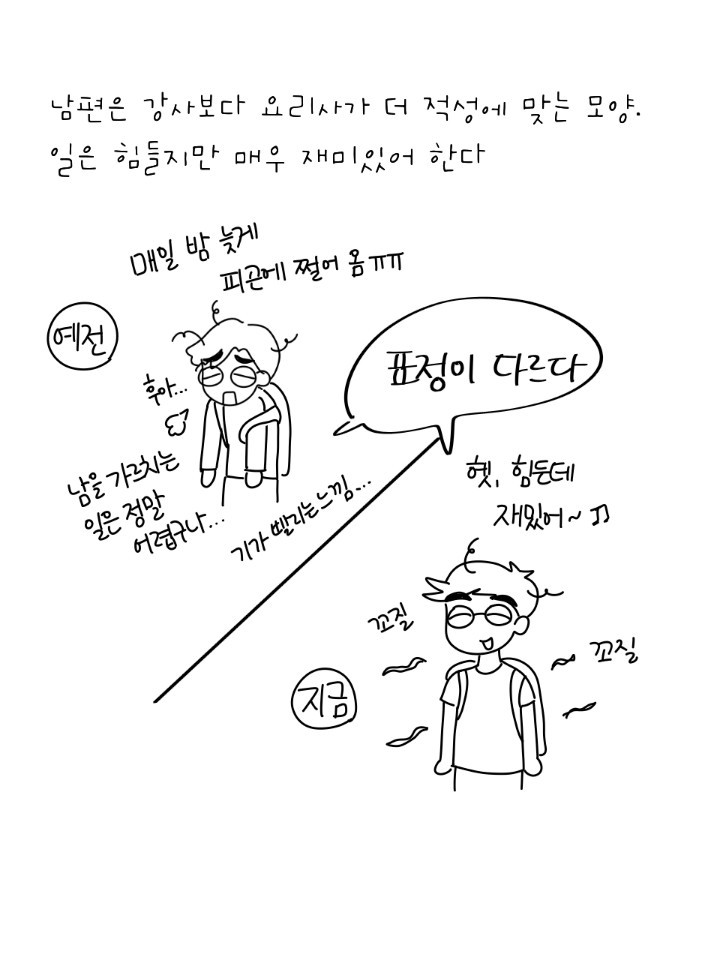 남편은 강사보다 요리사가 더 적성에 맞는 모양.
일은 힘들지만 매우 재미있어 한다
매일 밤 늦게
피곤에 쩔어 옴ㅠㅠ
예전
후아...
남을 가르치는
일은 정말
어렵구나...
기가 빨리는느낌...
표정이 다르다
헷, 힘든데
재밌어~♫
꼬질
꼬질
지금